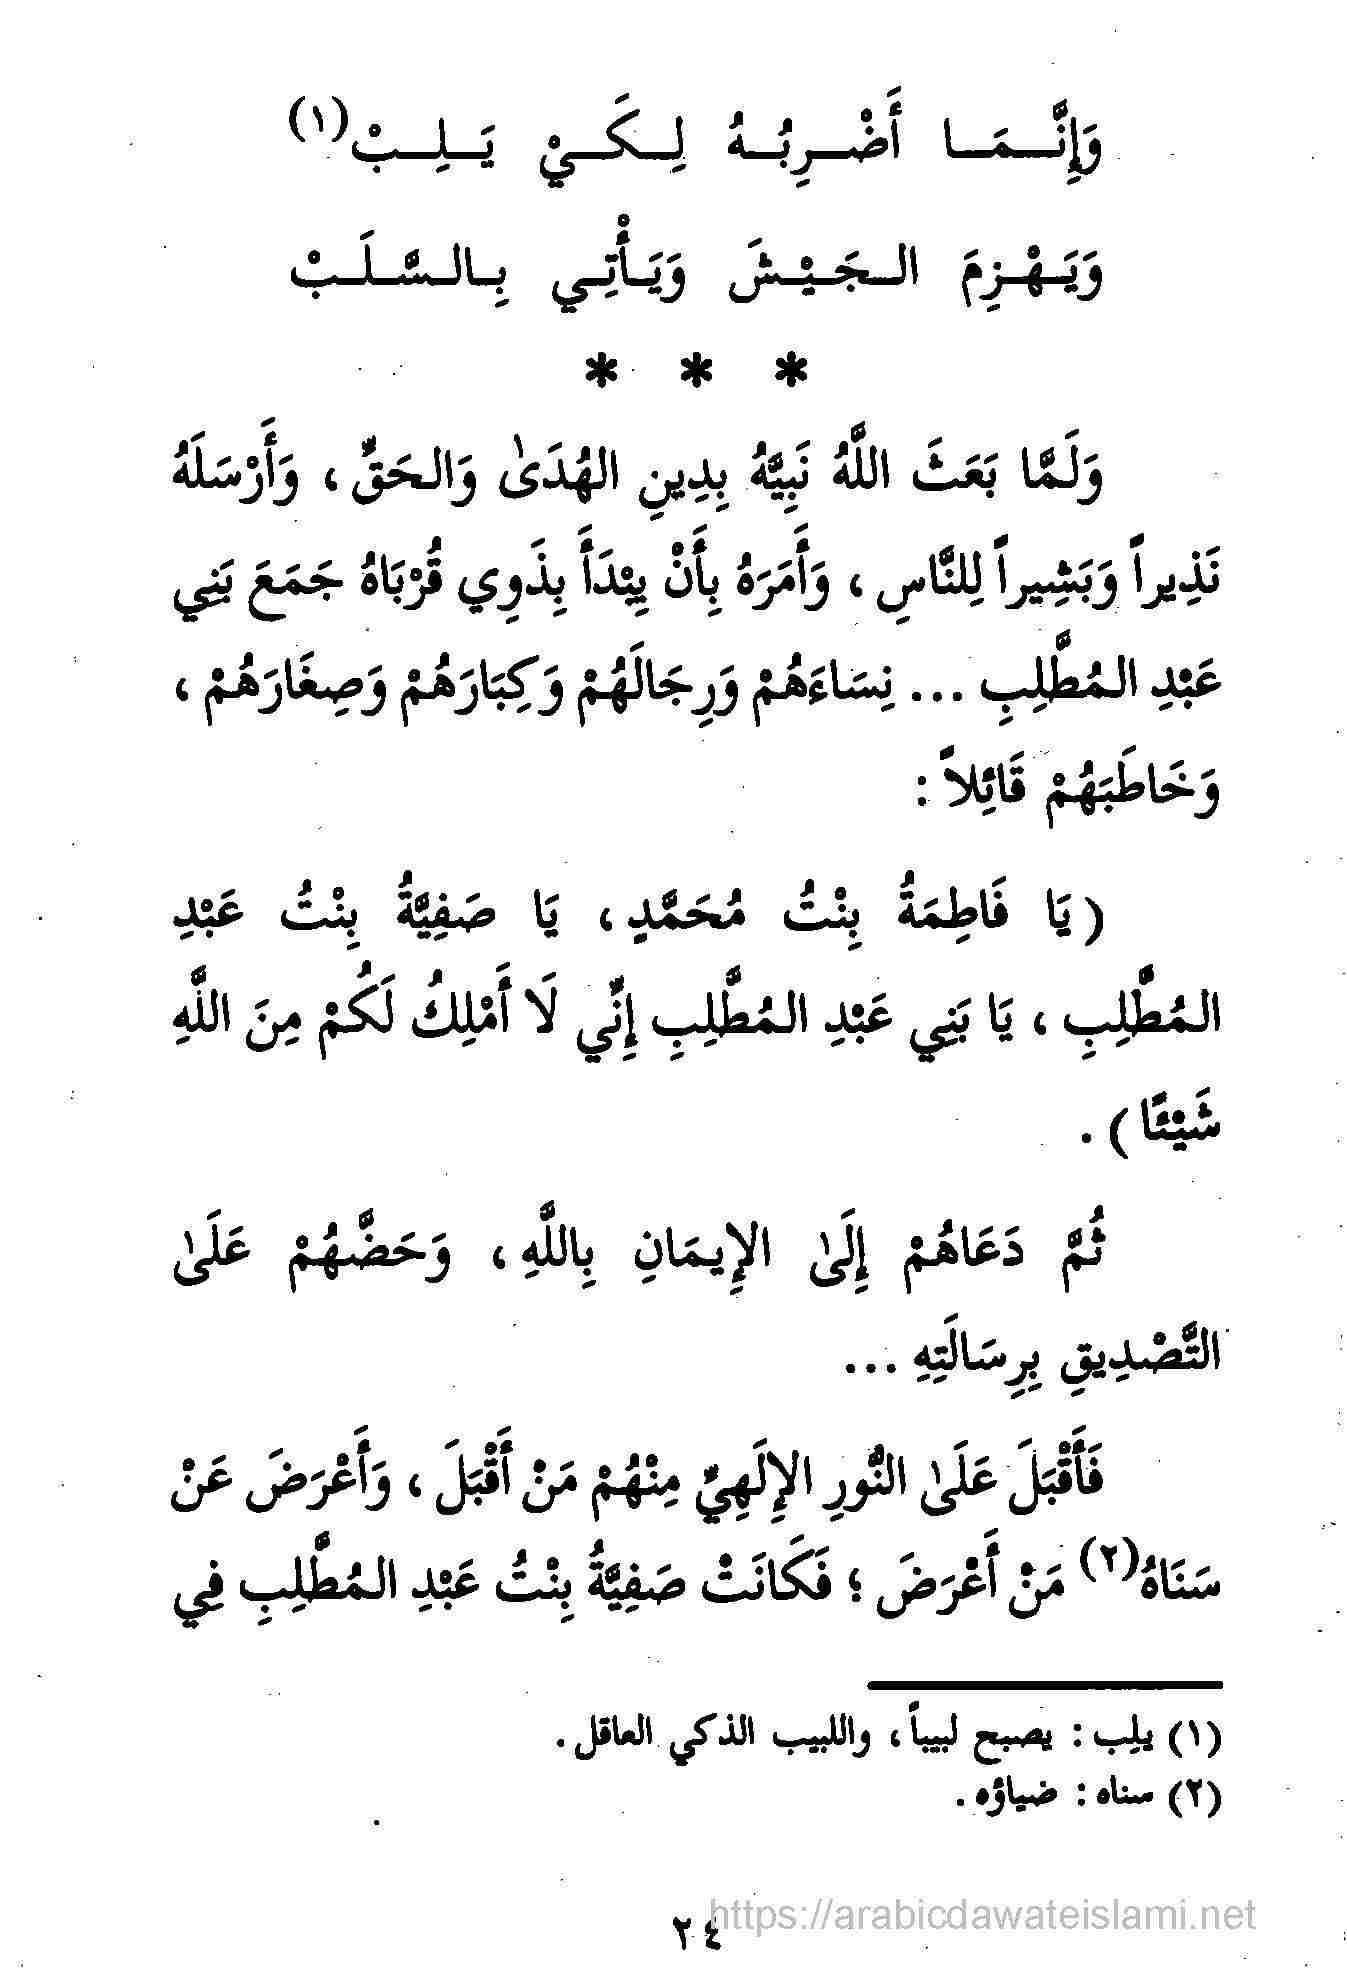 وَإِنَّمَا أَضْرِبُهُ لِكَيْ يَلِبْ(١)
وَيَهْزِمَ الجَيْشَ وَيَأْتِي بِالسَّلَبْ
* * *
وَلَمَّا بَعَثَ اللَّهُ نَبِيَّهُ بِدِينِ الهُدَىٰ وَالحَقِّ، وَأَرْسَلَهُ
نَذِيراً وَبَشِيراً لِلنَّاسِ، وَأَمَرَهُ بِأَنْ يَبْدَأَ بِذَوِي قُرْبَاهُ جَمَعَ بَنِي
عَبْدِ المُطَّلِبِ ... نِسَاءَهُمْ وَرِجَالَهُمْ وَكِبَارَهُمْ وَصِغَارَهُمْ،
وَخَاطَبَهُمْ قَائِلاً :
( يَا فَاطِمَةُ بِنْتُ مُحَمَّدٍ، يَا صَفِيَّةُ بِنْتُ عَبْدِ
المُطَّلِبِ، يَا بَنِي عَبْدِ المُطَّلِبِ إِنِّي لَا أَمْلِكُ لَكُمْ مِنَ اللَّهِ
شَيْئًا ) .
ثُمَّ دَعَاهُمْ إِلَىٰ الإِيمَانِ بِاللَّهِ، وَحَضَّهُمْ عَلَىٰ
التَّصْدِيقِ بِرِسَالَتِهِ ...
فَأَقْبَلَ عَلَىٰ النُّورِ الإِلَهِيِّ مِنْهُمْ مَنْ أَقْبَلَ، وَأَعْرَضَ عَنْ
سَنَاهُ(٢) مَنْ أَعْرَضَ ؛ فَكَانَتْ صَفِيَّةُ بِنْتُ عَبْدِ المُطَّلِبِ فِي
(١) يلِب : يصبح لبيباً، واللبيب الذكي العاقل.
(٢) سناه : ضياؤه .
٢٤
https://arabicdawateislami.net